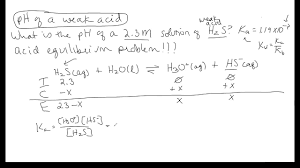 pH of a weak acid
weak acid
What is the pH of a 2.3M solution of H₂S? Ka = 1.19×10
acid equilibrium problem!!!
H₂S(aq) + H₂O(l) ⇌ H₃O⁺(aq) + HS⁻(aq)
I 2.3 ∅ ∅
C -x +x +x
E 2.3-x x x
Ka = [H3O⁺][HS⁻] / [H₂S] =